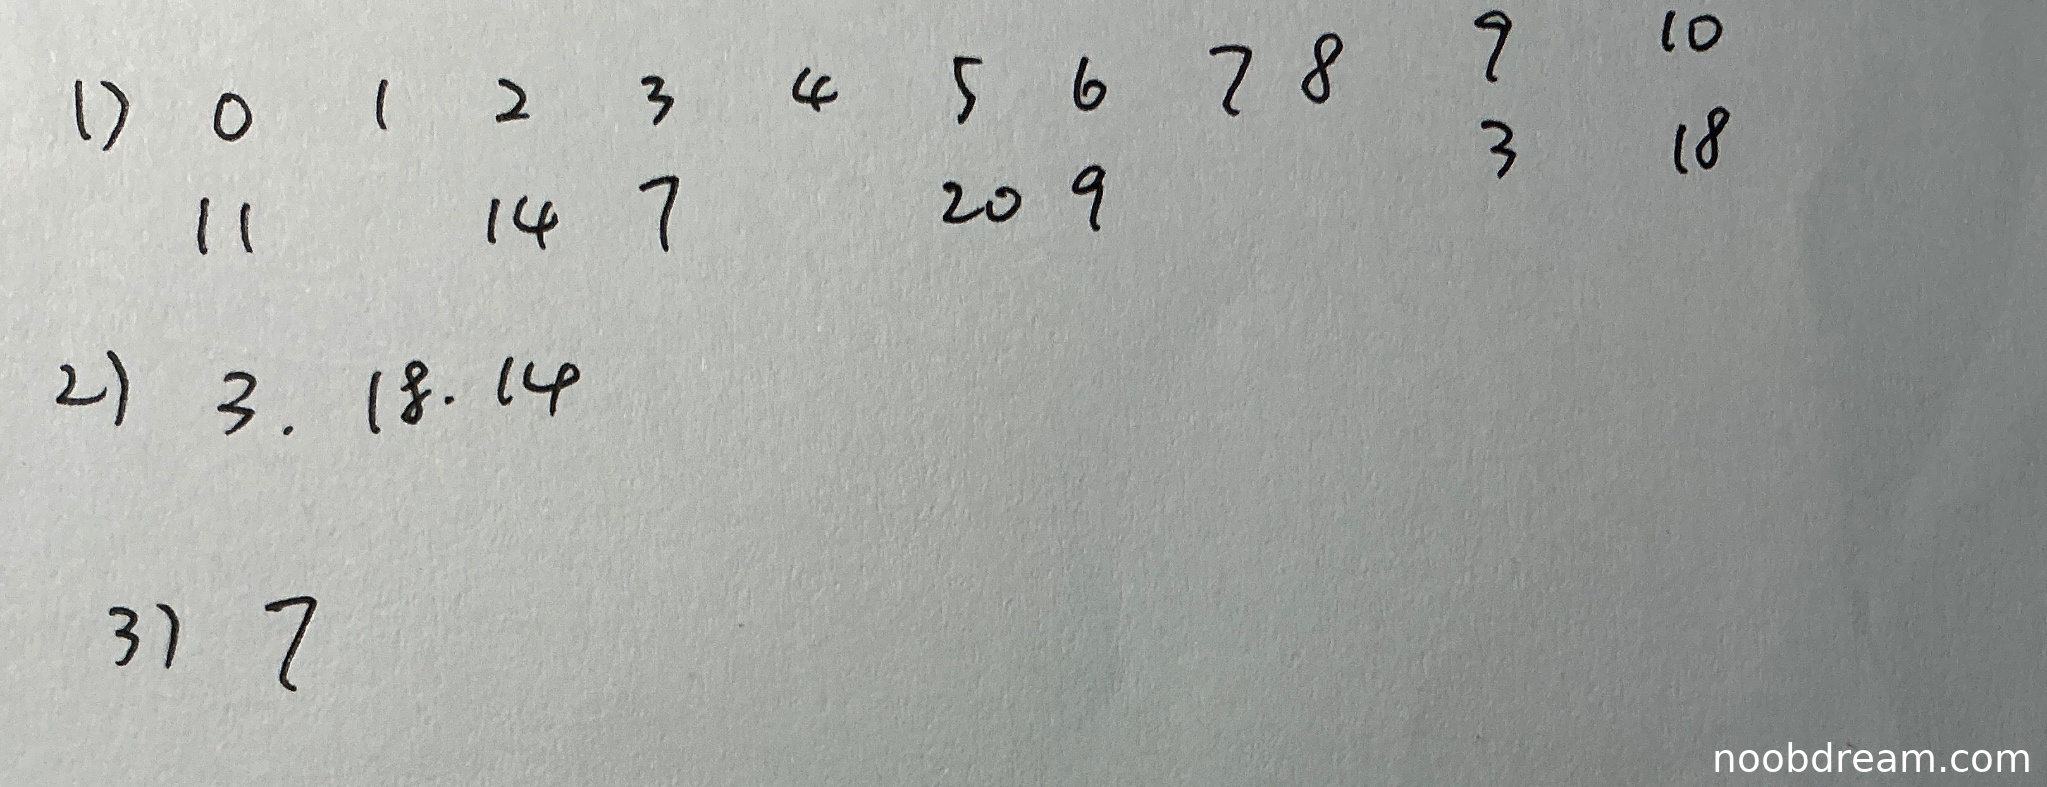 1) 0 1 2 3 4 5 6 7 8 9 10
11 14 7 20 9 3 18
2) 3. 18. 14
3) 7
noobdream.com